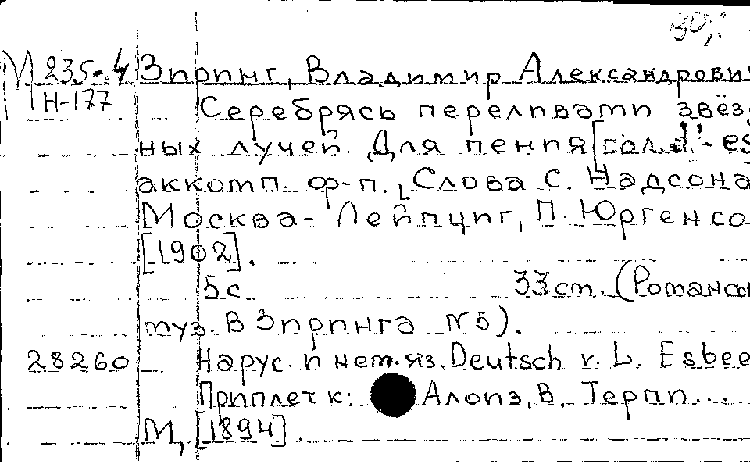 80,-
М 235-4 Зпрпнг, Владимир Александрови
Н-177 Серебрясь перелпватп звёз
ных лучей. Для пенпя [сол. d'-es
аккомп. ф-п., Слова С. Надсона
Москва-Лейпцпг, П. Юргенсо
[1902].
5с 33 cm. (Романсы
муз. В Зпрпнга №5).
28260 На рус. п нем. яз. Deutsch v. L. Esbee
Приплет к: Алопз, В. Терпп...
М, [1894].